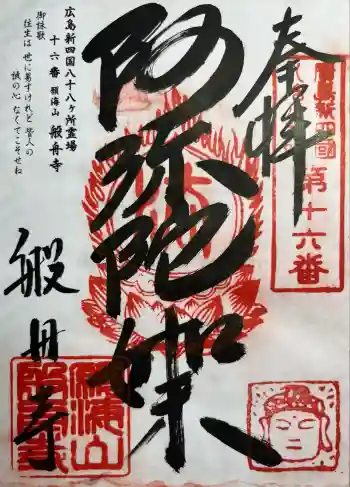 奉拝
廣島新四國
第十六番
阿弥陀如来
広島新四国八十八ヶ所霊場
十六番 願海山 般舟寺
御詠歌
往生は 世に易すけれど 皆人の
誠の心 なくてこそせね
般舟寺
願海山
般舟寺